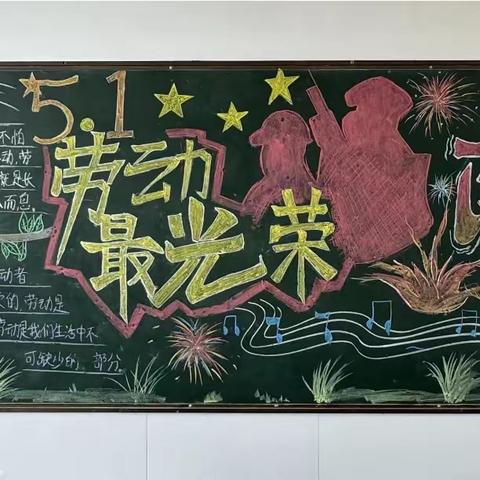 5.1
劳动
最光荣
不怕
动,劳
就是长
而息。
动者
的,劳动是
劳动是我们生活中不
可缺少的一部分。